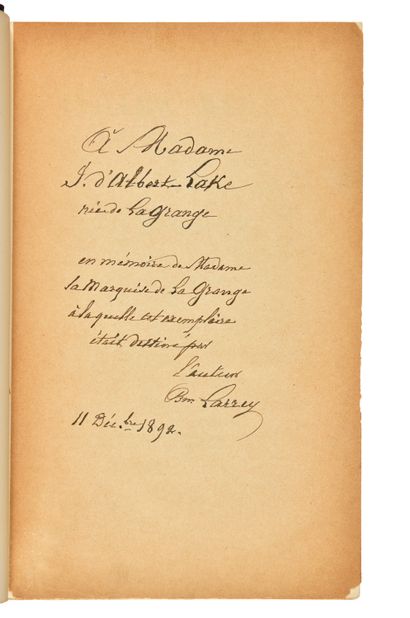 À Madame
J. d'Albert-Lake
née de La Grange
en mémoire de Madame
la Marquise de La Grange
à laquelle cet exemplaire
était destiné par
l'auteur
Bon. Larrey
11 Déc.bre 1892.